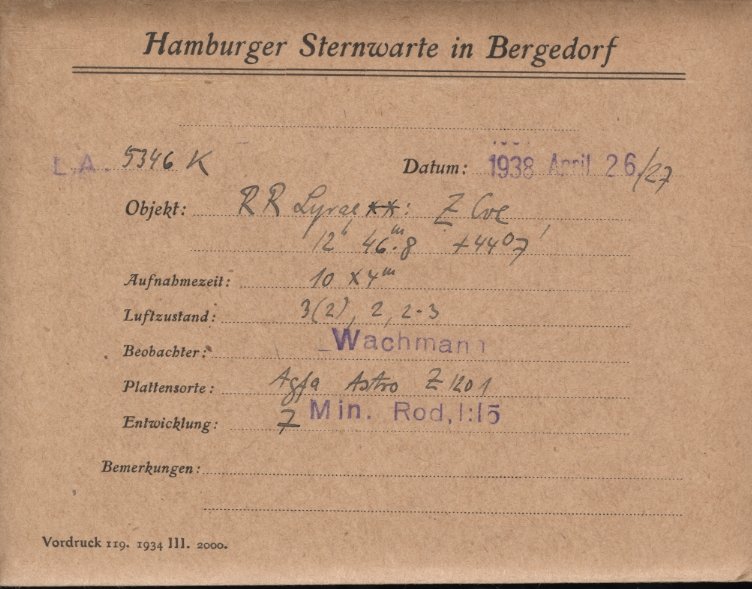 Hamburger Sternwarte in Bergedorf
L.A. 5346 K Datum: 1938 April 26/27
Objekt: RR Lyrae **: Z CVe
12ʰ 46ᵐ.8 +44°7'
Aufnahmezeit: 10 x 4ᵐ
Luftzustand: 3(2), 2, 2-3
Beobachter: Wachmann
Plattensorte: Agfa Astro Z 1201
Entwicklung: 7 Min. Rod, 1:15
Bemerkungen:
Vordruck 119. 1934 III. 2000.